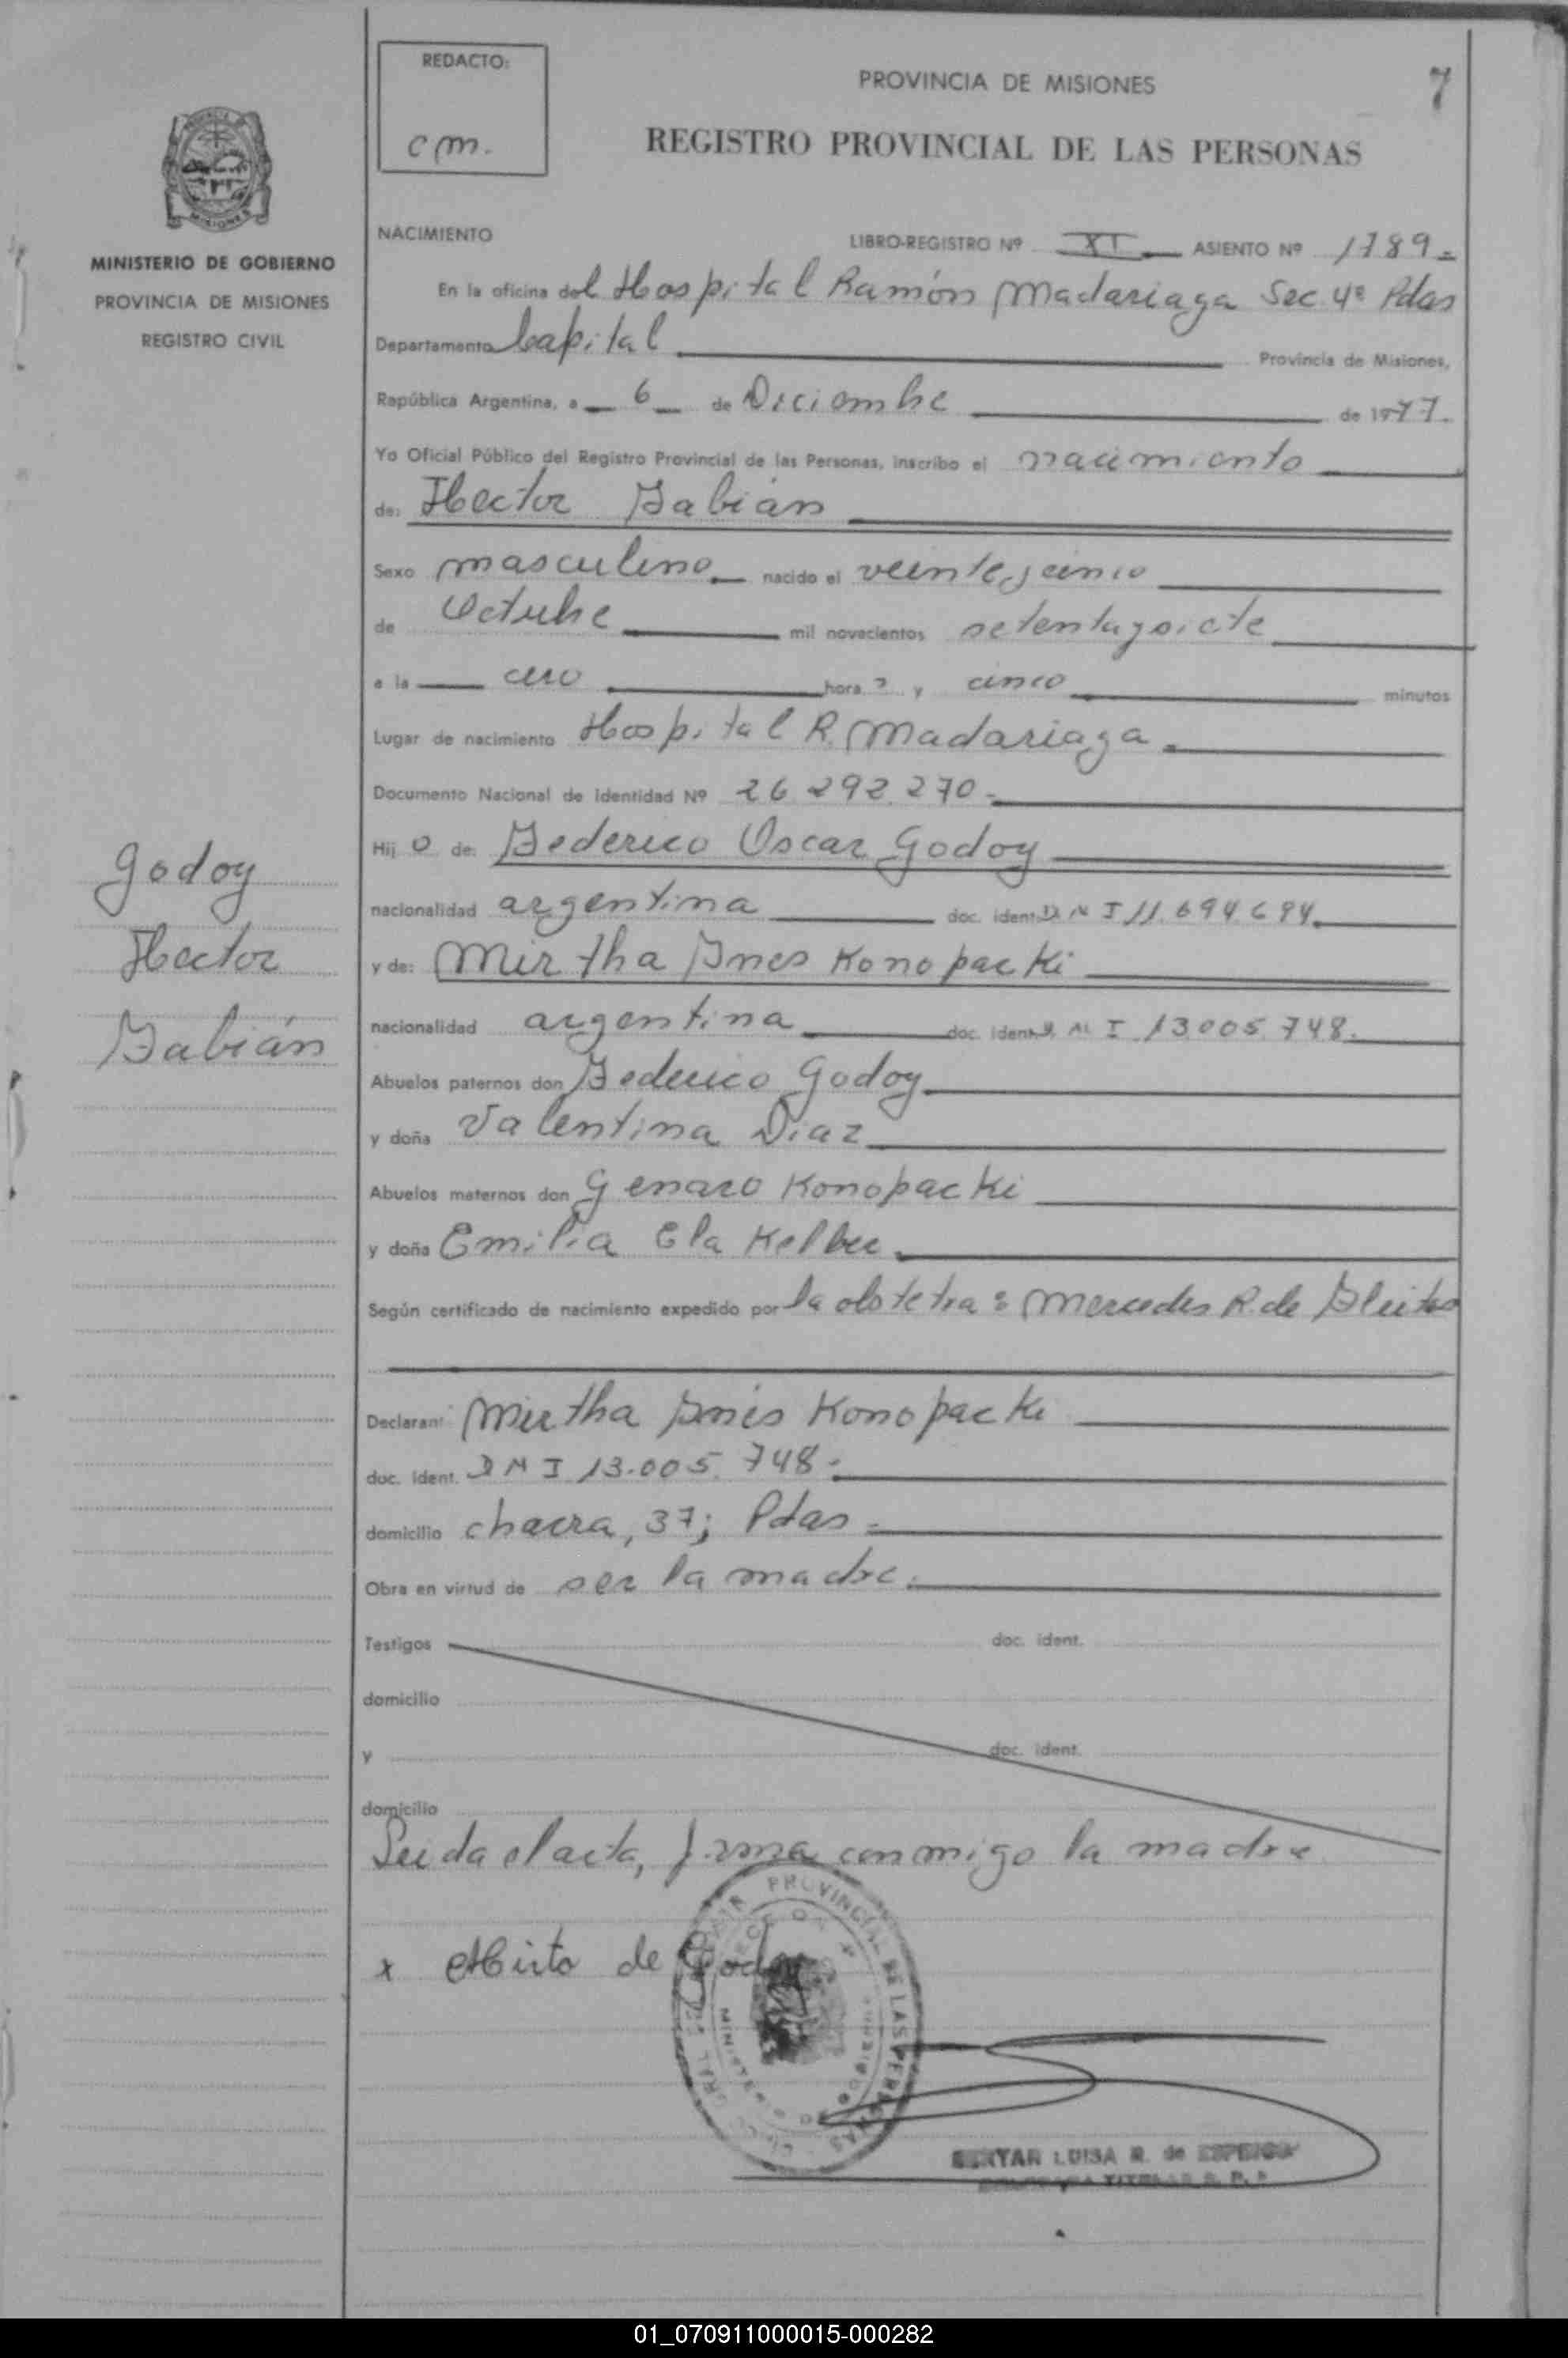 REDACTO:
cm.
PROVINCIA DE MISIONES
7
REGISTRO PROVINCIAL DE LAS PERSONAS
MISIONES
MINISTERIO DE GOBIERNO
PROVINCIA DE MISIONES
REGISTRO CIVIL
NACIMIENTO
LIBRO-REGISTRO Nº XI ASIENTO Nº 1789
En la oficina del Hospital Ramón Madariaga Sec 4ª Pdas
Departamento Capital Provincia de Misiones,
República Argentina, a 6 de Diciembre de 1977.
Yo Oficial Público del Registro Provincial de las Personas, inscribo el nacimiento
de: Hector Fabián
Sexo masculino nacido el veinteycinco
de Octubre mil novecientos setentaysiete
a la cero hora s y cinco minutos
Lugar de nacimiento Hospital R. Madariaga.
Documento Nacional de Identidad Nº 26.292.270.-
Hij o de: Federico Oscar Godoy
nacionalidad argentina doc. ident. DNI 11.694.694.
y de: Mirtha Ines Konopacki
nacionalidad argentina doc. ident. DNI 13.005.748.
Abuelos paternos don Federico Godoy
y doña Valentina Diaz
Abuelos maternos don Genaro Konopacki
y doña Emilia Ela Kelber
Según certificado de nacimiento expedido por la obstetra: Mercedes R. de
Declarant Mirtha Inés Konopacki
doc. ident. DNI 13.005.748.-
domicilio chacra, 37; Pdas.-
Obra en virtud de ser la madre.
Testigos doc. ident.
domicilio
y doc. ident.
domicilio
Leida el acta, firma conmigo la madre
x Mirta de Godoy
PROVINCIAL DE LAS PERSONAS
LUISA R. de
TITULAR R. P. P.
Godoy
Hector
Fabián
01_070911000015-000282